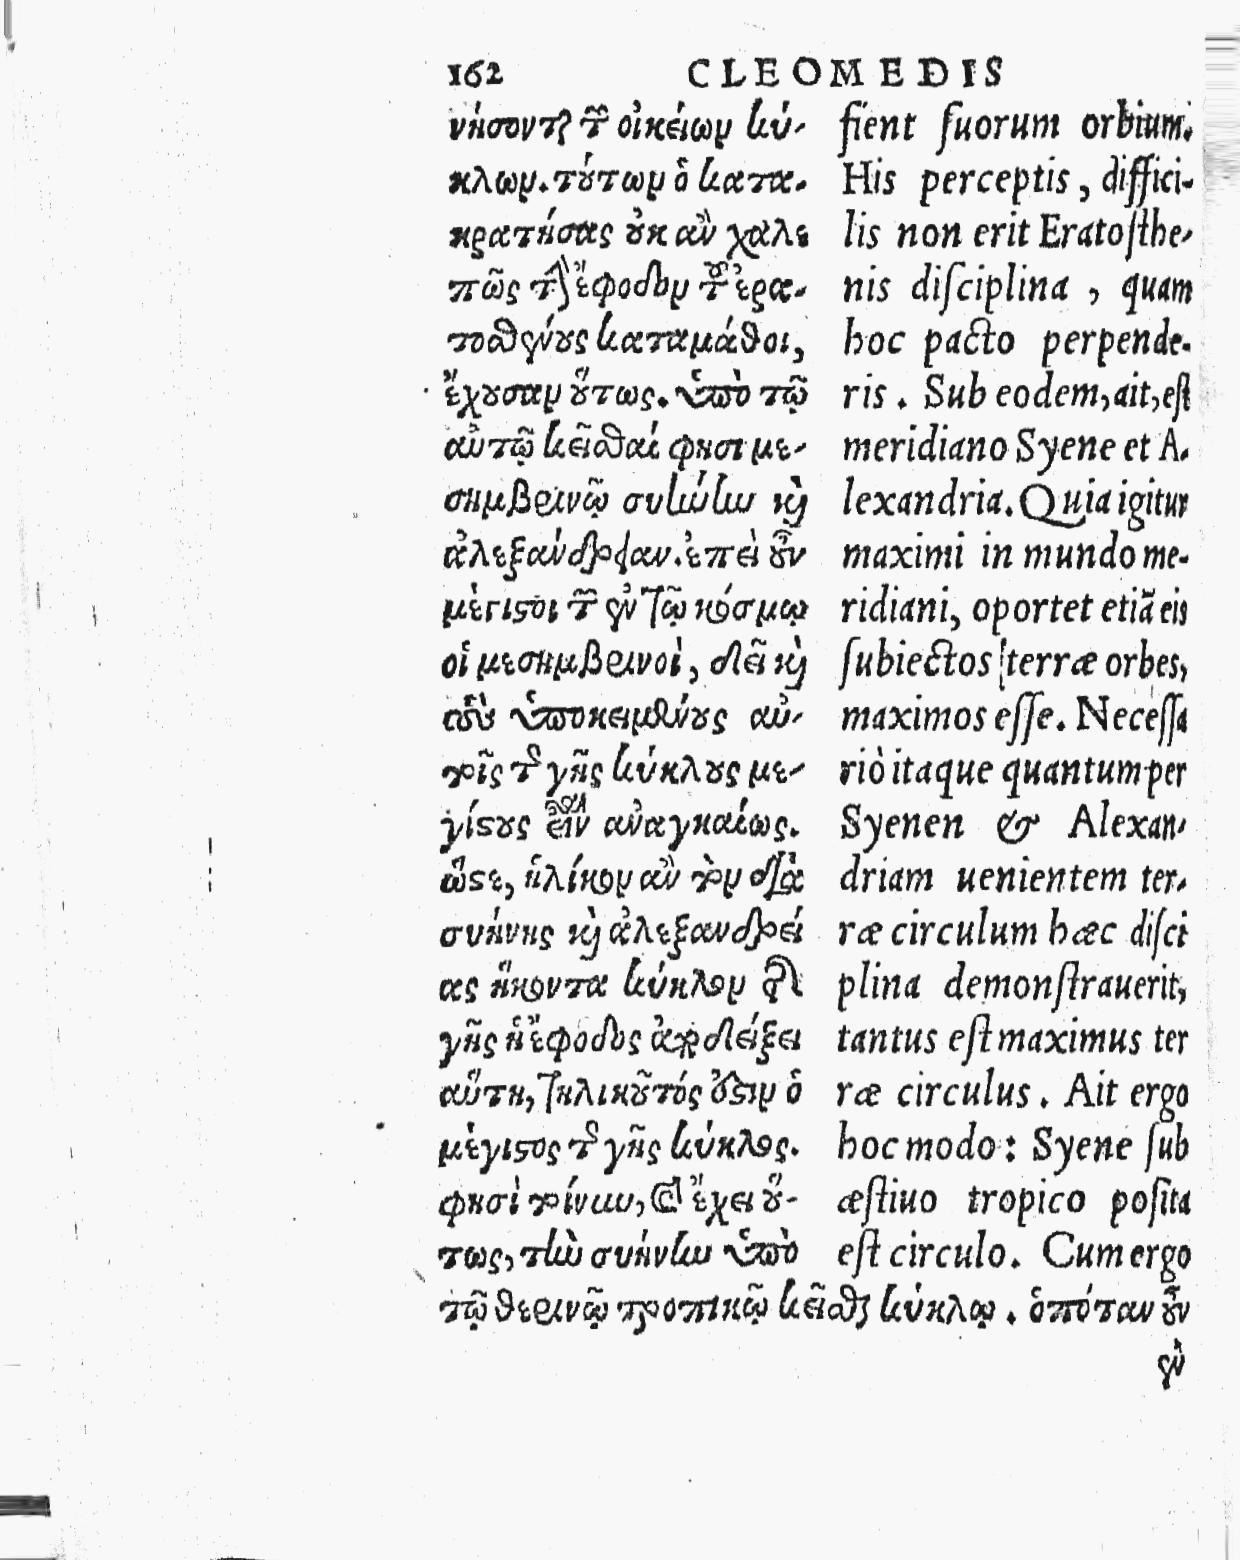 162 CLEOMEDIS
νήσονται τῶν οἰκείων κύ-
κλων. τούτων ὁ κατα-
κρατήσας οὐκ ἂν χαλε
πῶς τὴν ἔφοδον τοῦ ἐρα-
τοσθένους καταμάθοι,
ἔχουσαν οὕτως. ὑπὸ τῷ
αὐτῷ κεῖσθαί φησι με-
σημβρινῷ συήνην καὶ
ἀλεξάνδρειαν. ἐπεὶ οὖν
μέγιστοι τῶν ἐν τῷ κόσμῳ
οἱ μεσημβρινοὶ, δεῖ καὶ
τοὺς ὑποκειμένους αὐ-
τοῖς τῆς γῆς κύκλους με-
γίστους εἶναι ἀναγκαίως.
ὥστε, ἡλίκον ἂν τὸν διὰ
συήνης καὶ ἀλεξανδρεί
ας ἥκοντα κύκλον τῆς
γῆς ἡ ἔφοδος ἀποδείξει
αὕτη, τηλικοῦτός ἐστιν ὁ
μέγιστος τῆς γῆς κύκλος.
φησὶ τοίνυν, καὶ ἔχει οὕ-
τως, τὴν συήνην ὑπὸ
τῷ θερινῷ τροπικῷ κεῖσθαι κύκλῳ. ὁπόταν οὖν
ἐν
fient suorum orbium.
His perceptis, diffici-
lis non erit Eratosthe-
nis disciplina, quam
hoc pacto perpende-
ris. Sub eodem, ait, est
meridiano Syene et A-
lexandria. Quia igitur
maximi in mundo me-
ridiani, oportet etiã eis
subiectos terræ orbes,
maximos esse. Necessa
riò itaque quantum per
Syenen & Alexan-
driam uenientem ter-
ræ circulum hæc disci
plina demonstrauerit,
tantus est maximus ter
ræ circulus. Ait ergo
hoc modo: Syene sub
æstiuo tropico posita
est circulo. Cum ergo